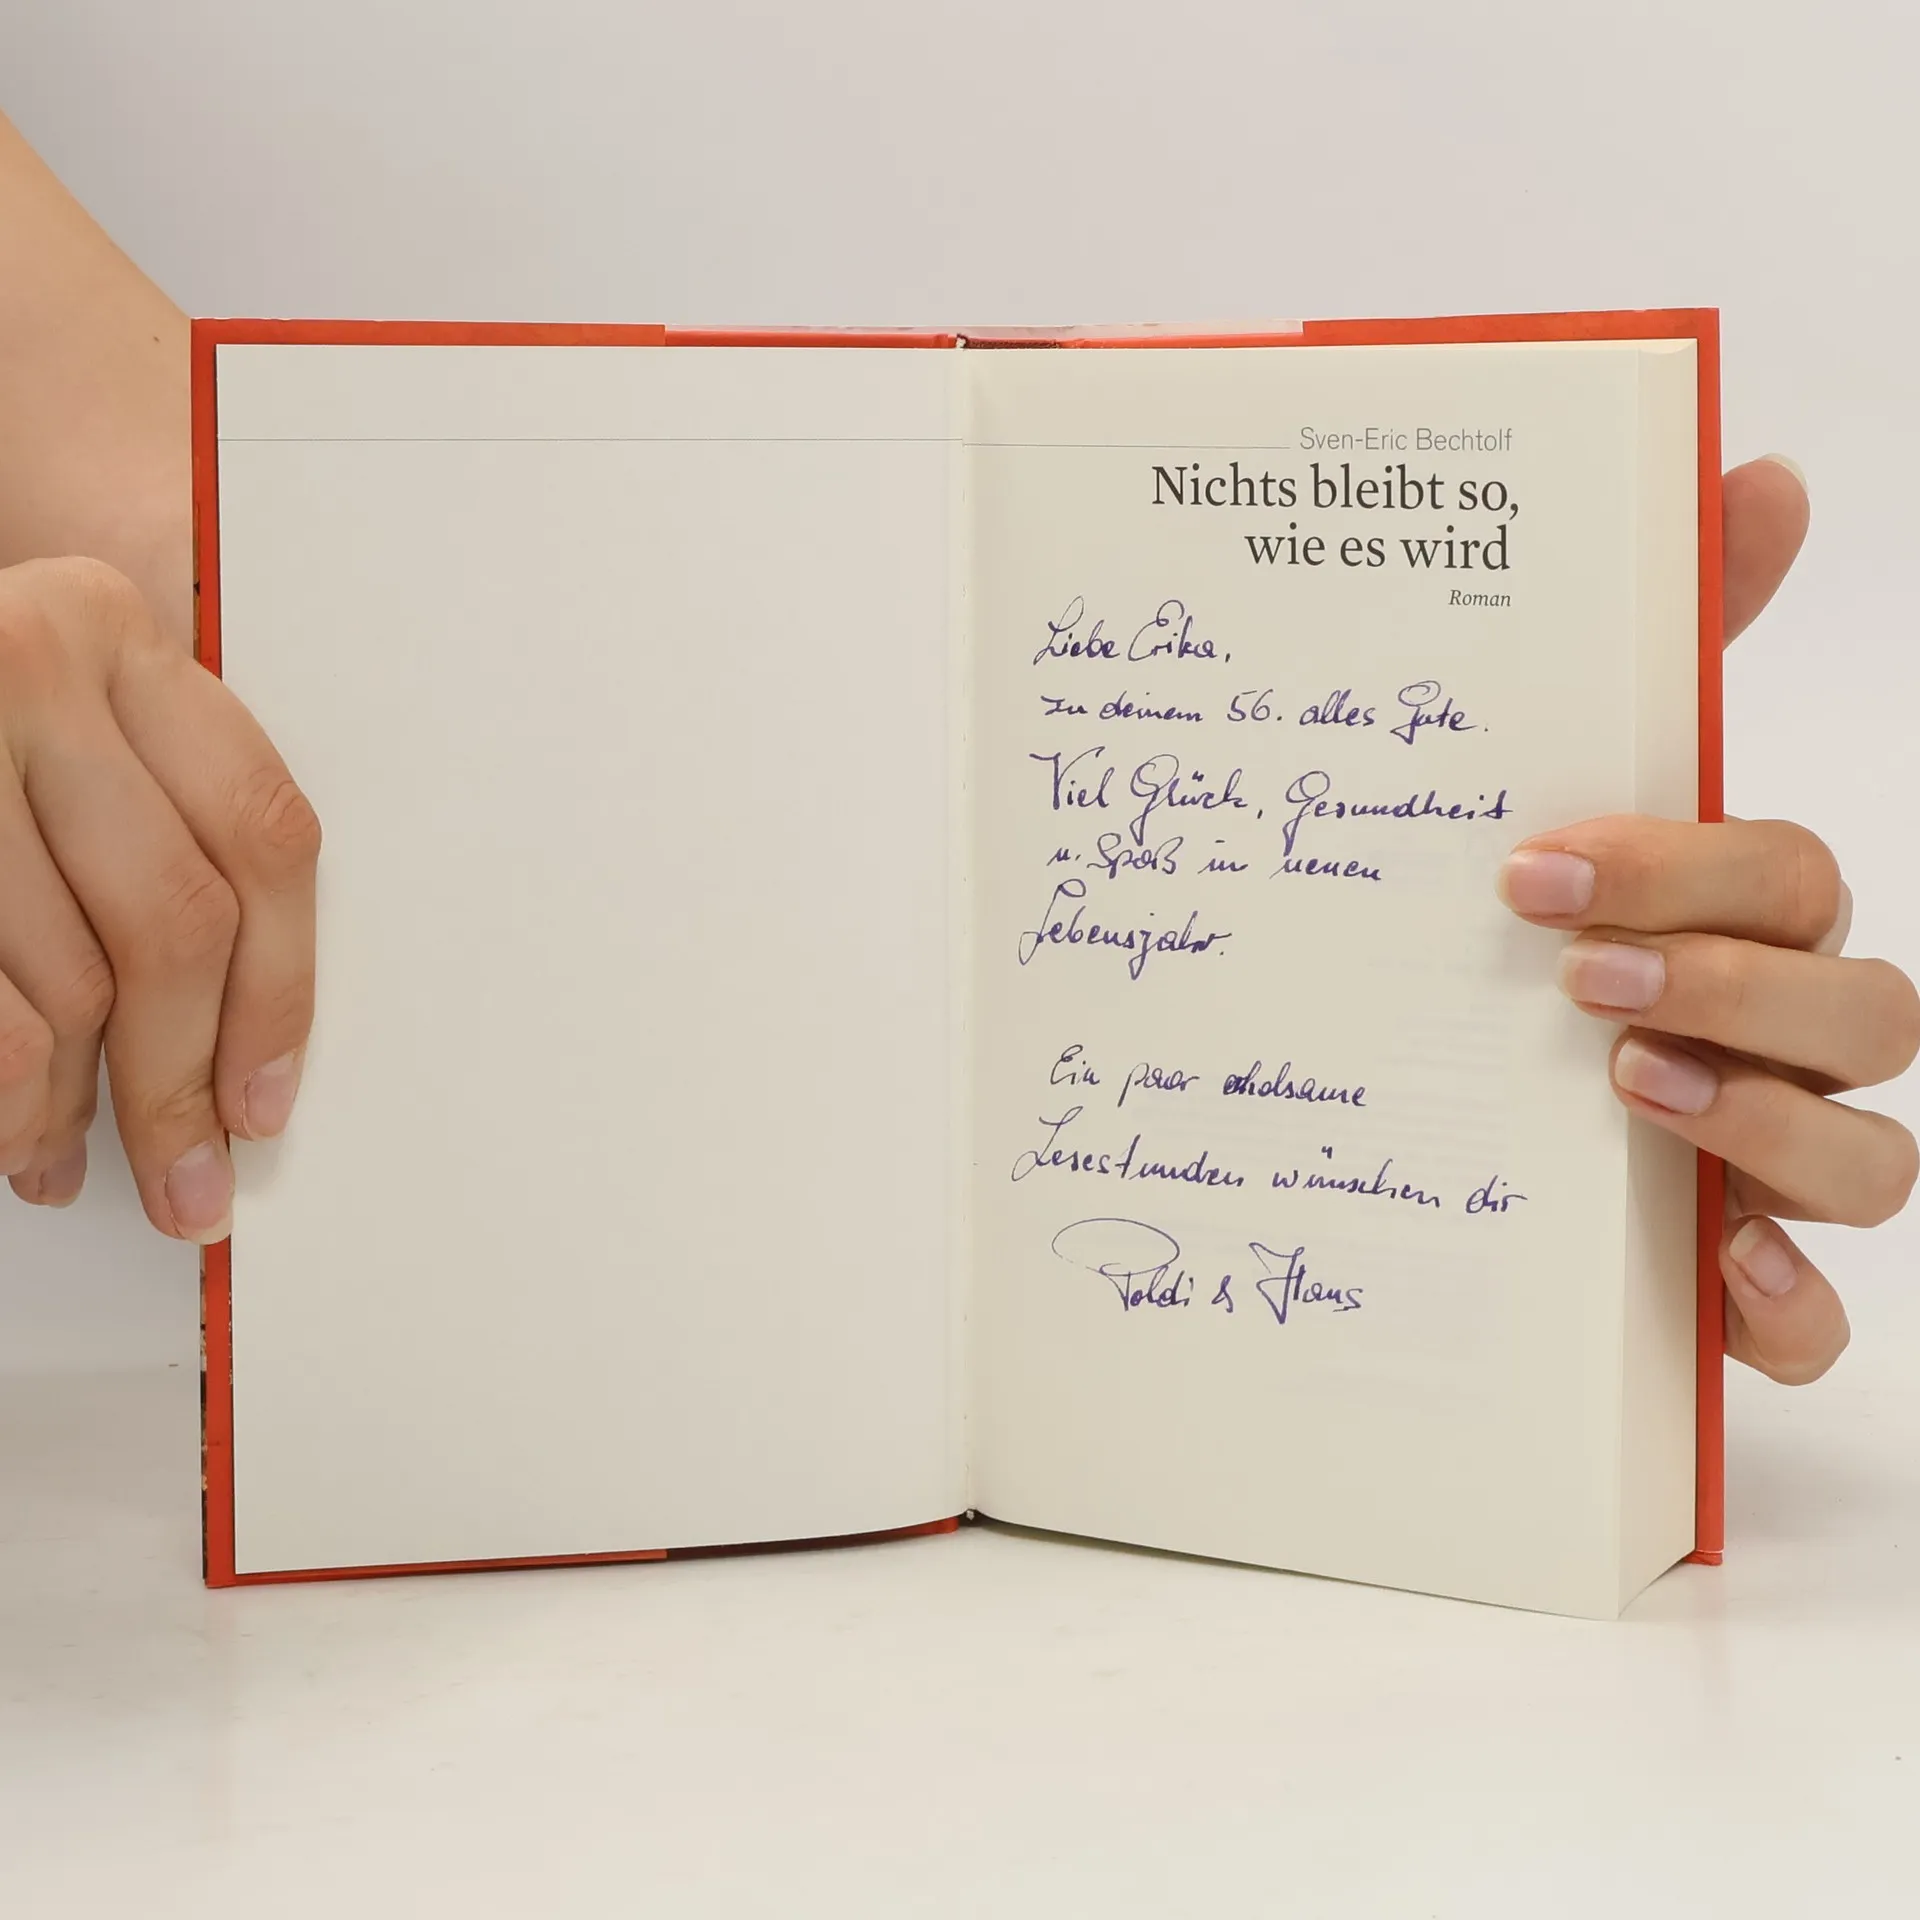 Sven-Eric Bechtolf
Nichts bleibt so,
wie es wird
Roman
Liebe Erika,
zu deinem 56. alles Gute.
Viel Glück, Gesundheit
u. Spaß im neuen
Lebensjahr.
Ein paar erholsame
Lesestunden wünschen dir
Poldi & Hans